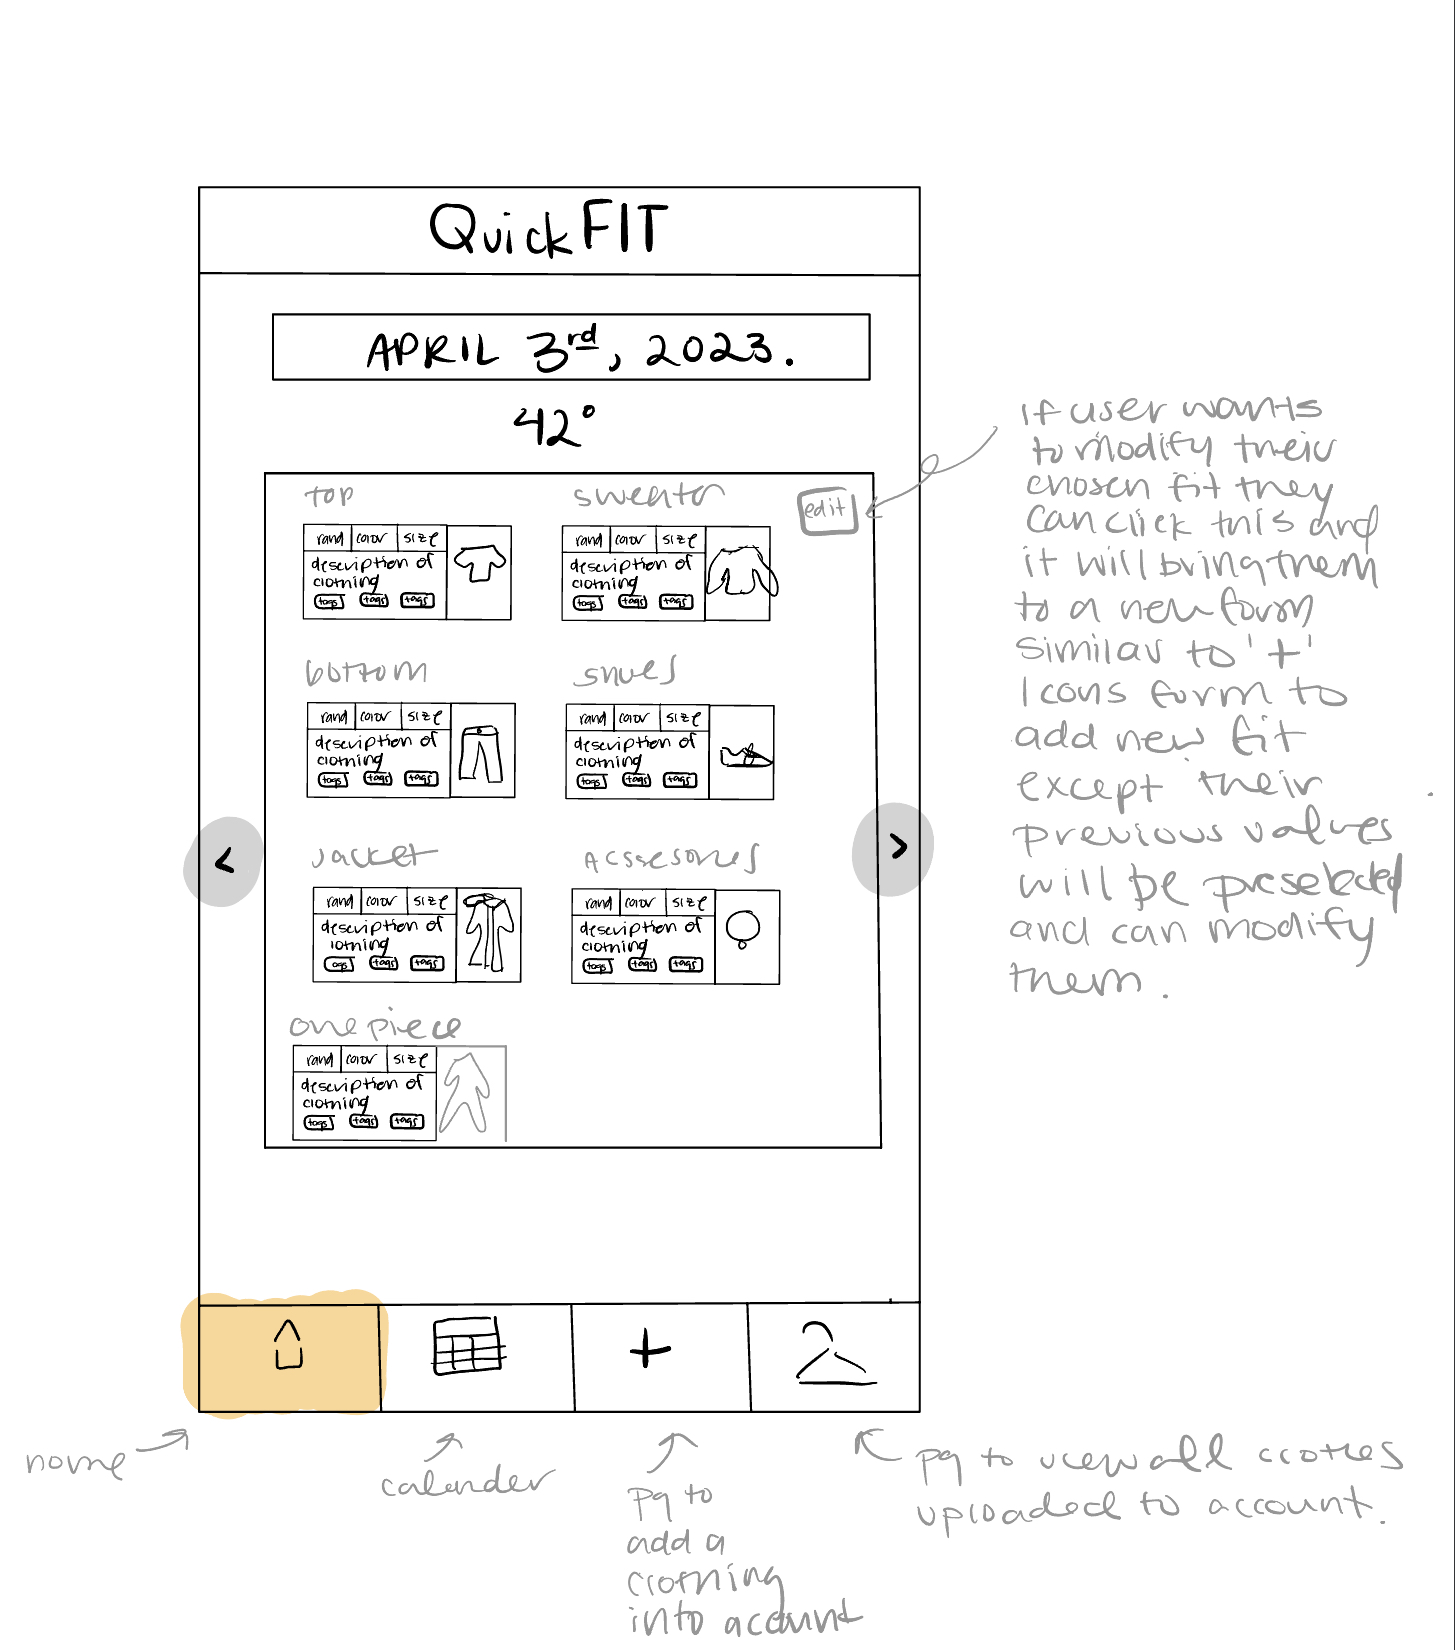 QuickFIT
APRIL 3rd, 2023.
42°
top
sweater
edit
rand color size
description of
clothing
tags tags tags
rand color size
description of
clothing
tags tags tags
bottom
shoes
rand color size
description of
clothing
tags tags tags
rand color size
description of
clothing
tags tags tags
<
>
Jacket
Acssesories
rand color size
description of
lothing
ags tags tags
rand color size
description of
clothing
tags tags tags
one piece
rand color size
description of
clothing
tags tags tags
if user wants
to modify their
chosen fit they
can click this and
it will bring them
to a new form
similar to '+'
Icons form to
add new fit
except their
previous values
will be preselected
and can modify
them.
+
home
calender
pg to
add a
clothing
into account
pg to view all clothes
uploaded to account.